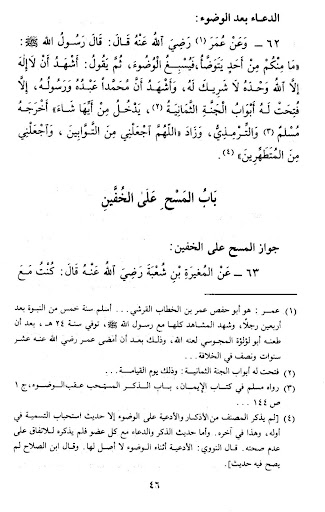 الدعاء بعد الوضوء:
٦٢ ـ وَعَنْ عُمَرَ (١) رَضِيَ اللَّهُ عَنْهُ قَالَ: قَالَ رَسُولُ اللَّهِ ﷺ:
«مَا مِنْكُمْ مِنْ أَحَدٍ يَتَوَضَّأُ، فَيُسْبِغُ الْوُضُوءَ، ثُمَّ يَقُولُ: أَشْهَدُ أَنْ لَا إِلَهَ
إِلَّا اللَّهُ وَحْدَهُ لَا شَرِيكَ لَهُ، وَأَشْهَدُ أَنَّ مُحَمَّداً عَبْدُهُ وَرَسُولُهُ، إِلَّا
فُتِحَتْ لَهُ أَبْوَابُ الْجَنَّةِ الثَّمَانِيَةُ (٢)، يَدْخُلُ مِنْ أَيِّهَا شَاءَ» أَخْرَجَهُ
مُسْلِمٌ (٣) وَالتِّرْمِذِيُّ، وَزَادَ: «اللَّهُمَّ اجْعَلْنِي مِنَ التَّوَّابِينَ، وَاجْعَلْنِي
مِنَ الْمُتَطَهِّرِينَ» (٤).
بَابُ الْمَسْحِ عَلَى الْخُفَّيْنِ
جواز المسح على الخفين:
٦٣ ـ عَنِ الْمُغِيرَةِ بْنِ شُعْبَةَ رَضِيَ اللَّهُ عَنْهُ قَالَ: كُنْتُ مَعَ
(١) عمر: هو أبو حفص عمر بن الخطاب القرشي... أسلم سنة خمس من النبوة بعد
أربعين رجلاً، وشهد المشاهد كلها مع رسول الله ﷺ، توفي سنة ٢٤ هـ، بعد أن
طعنه أبو لؤلؤة المجوسي لعنه الله، وذلك بعد أن أمضى عمر رضي الله عنه عشر
سنوات ونصف في الخلافة...
(٢) فتحت له أبواب الجنة الثمانية: وذلك يوم القيامة...
(٣) رواه مسلم في كتاب الإيمان، باب الذكر المستحب عقب الوضوء، ج ١
ص ١٤٤...
(٤) [لم يذكر المصنف من الأذكار والأدعية على الوضوء إلا حديث استحباب التسمية في
أوله، وهذا في آخره. وأما حديث الذكر والدعاء مع كل عضو فلم يذكره للاتفاق على
عدم صحته. قال النووي: الأدعية أثناء الوضوء لا أصل لها. وقال ابن الصلاح لم
يصح فيه حديث].
٤٦